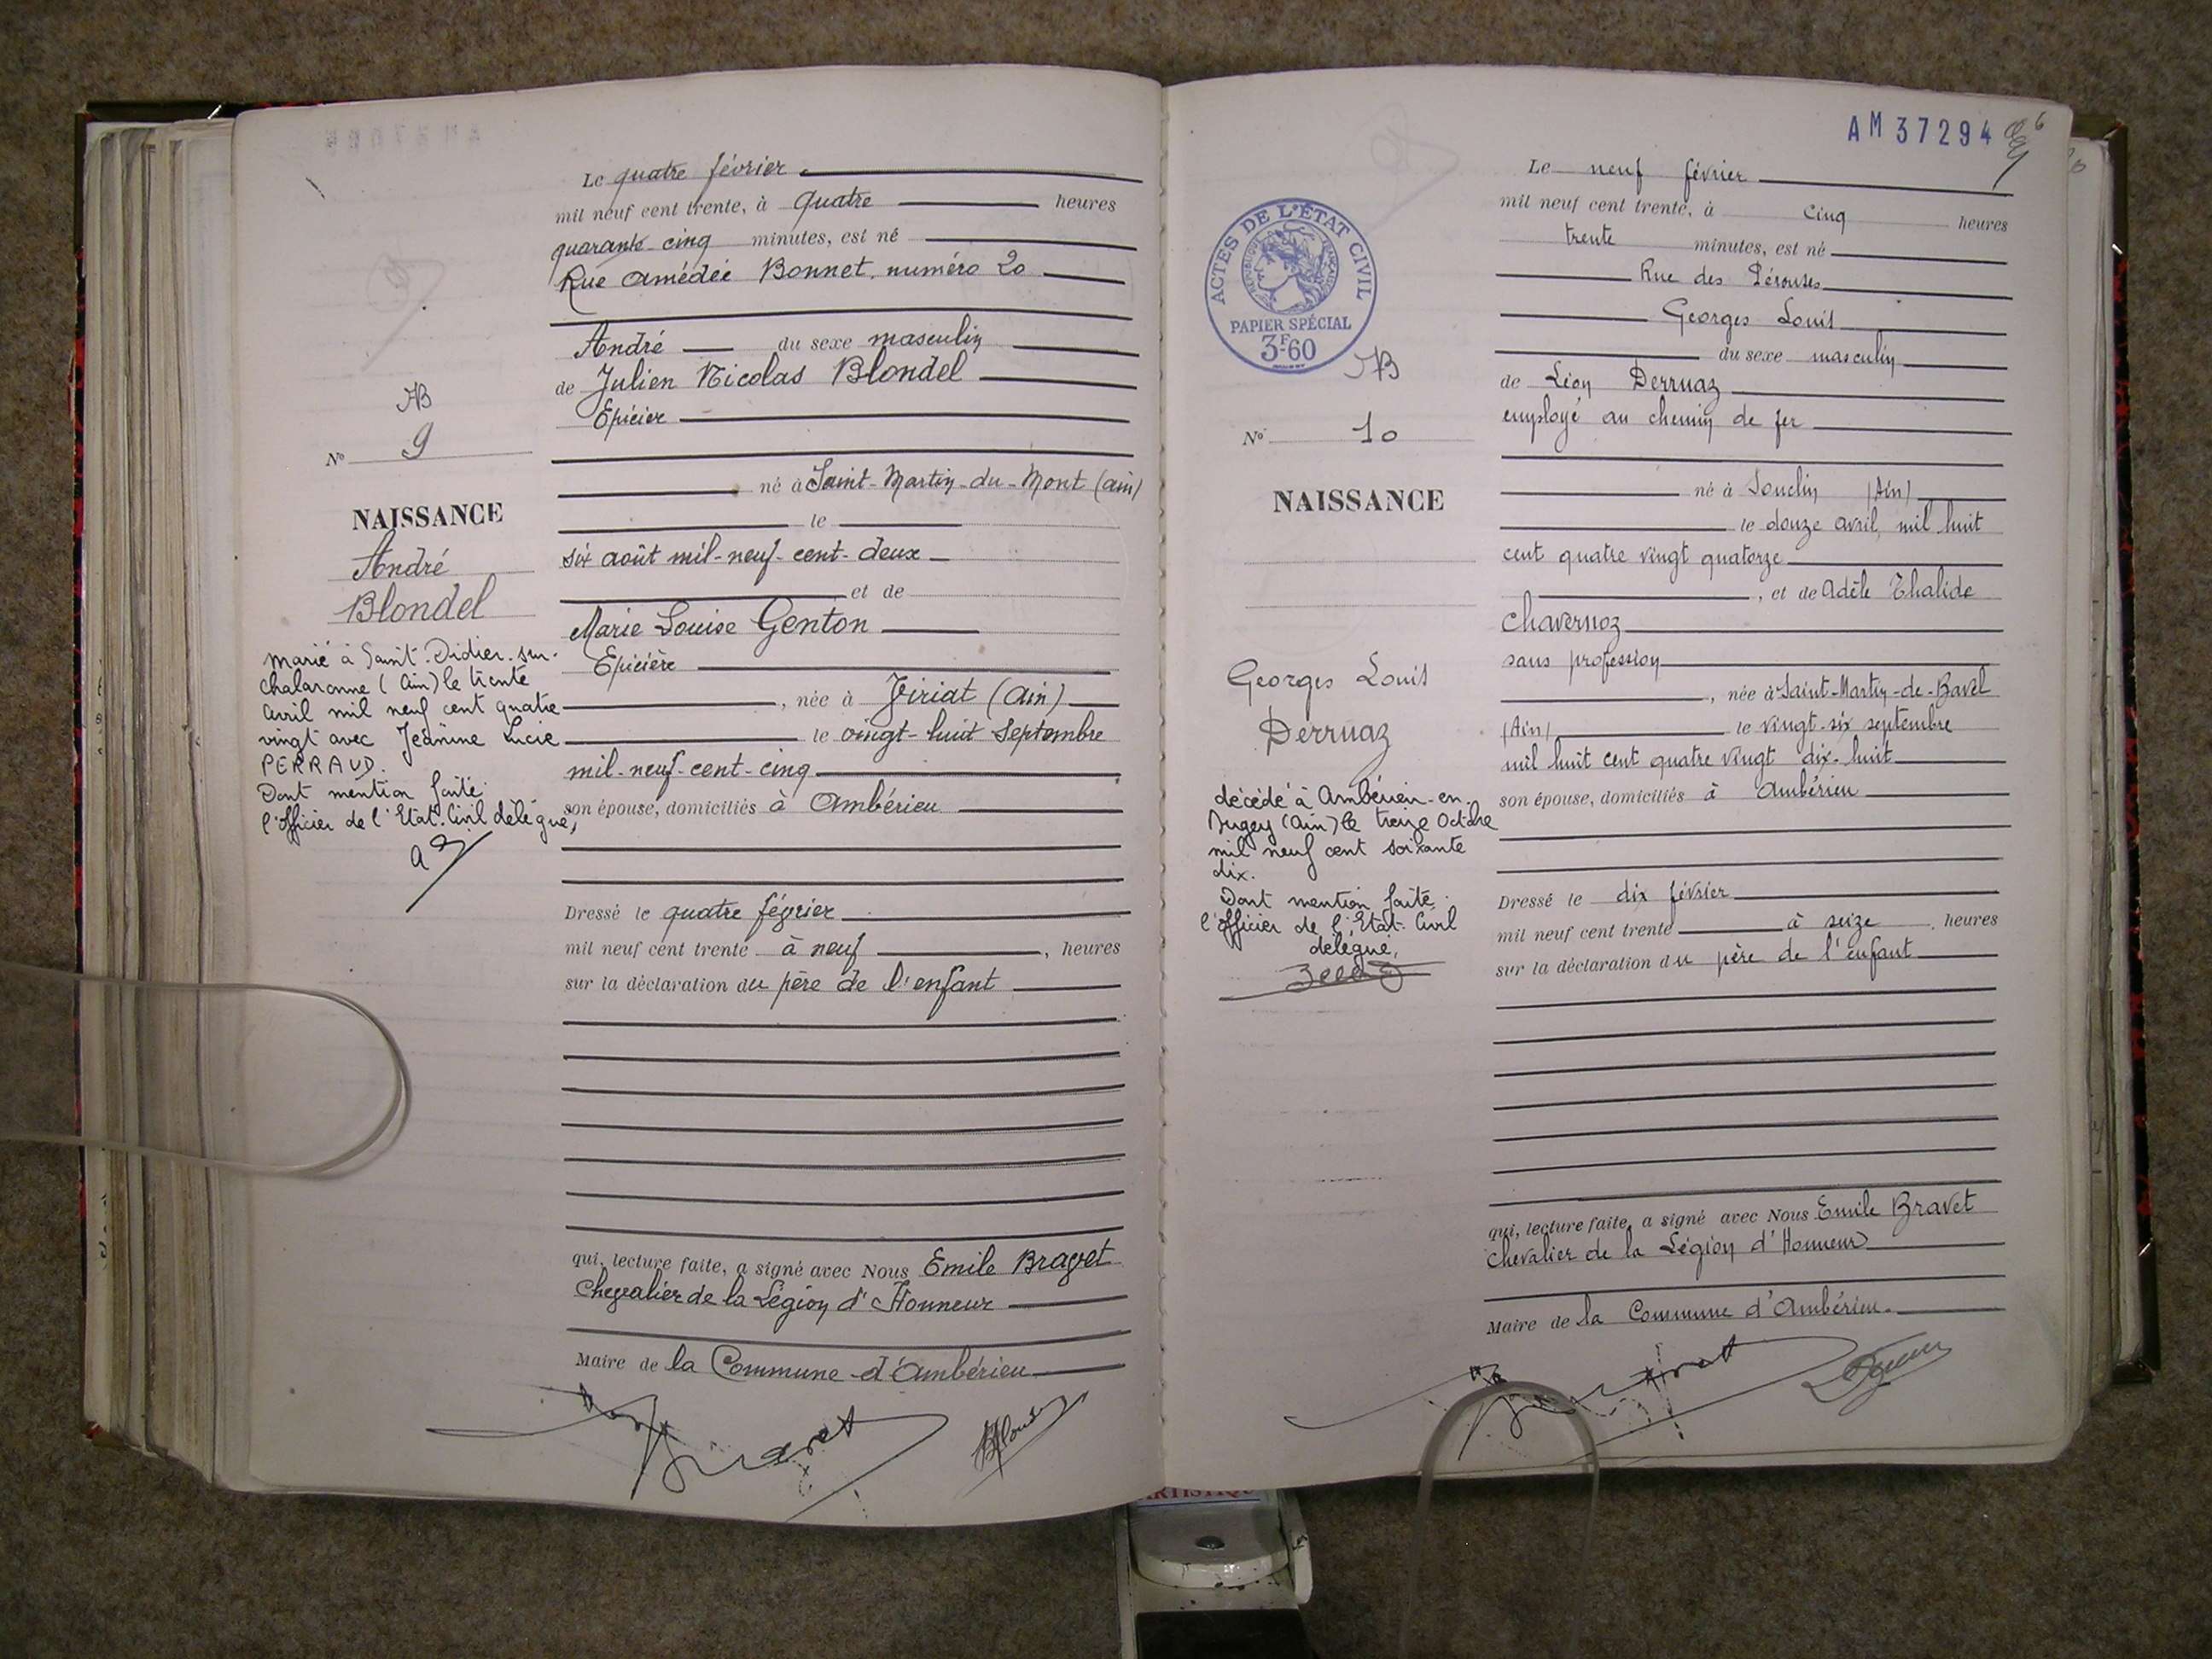 Le quatre février
mil neuf cent trente, à quatre heures
quarante cinq minutes, est né
Rue Amédée Bonnet, numéro 20
André du sexe masculin
de Julien Nicolas Blondel
Epicier
né à Saint-Martin-du-Mont (Ain)
le
six août mil-neuf-cent-deux
et de
Marie Louise Genton
Epicière
, née à Viriat (Ain)
le vingt-huit Septembre
mil-neuf-cent-cinq
son épouse, domiciliés à Ambérieu
Dressé le quatre février
mil neuf cent trente à neuf , heures
sur la déclaration du père de l'enfant
qui, lecture faite, a signé avec Nous Emile Bravet
Chevalier de la Légion d'Honneur
Maire de la Commune d'Ambérieu
Bravet
Blondel
N° 9
NAISSANCE
André
Blondel
marié à Saint-Didier-sur-
Chalaronne (Ain) le trente
avril mil neuf cent quatre
vingt avec Jeánine Lucie
PERRAUD.
Dont mention faite
l'officier de l'Etat-Civil délégué,
AM 37294
6
ACTES DE L'ÉTAT CIVIL
RÉPUBLIQUE FRANÇAISE
PAPIER SPÉCIAL
3F60
N° 10
NAISSANCE
Georges Louis
Derruaz
décédé à Ambérieu-en-
Bugey (Ain) le treize Octobre
mil neuf cent soixante
dix.
Dont mention faite.
l'officier de l'Etat-Civil
délégué,
Le neuf février
mil neuf cent trente, à cinq heures
trente minutes, est né
Rue des Pérouses
Georges Louis
du sexe masculin
de Léon Derruaz
employé au chemin de fer
né à Souclin (Ain)
le douze avril, mil huit
cent quatre vingt quatorze
, et de Adèle Thalide
Chavernoz
sans profession
, née à Saint-Martin-de-Bavel
(Ain) le vingt-six septembre
mil huit cent quatre vingt dix-huit
son épouse, domiciliés à Ambérieu
Dressé le dix février
mil neuf cent trente à seize , heures
sur la déclaration du père de l'enfant
qui, lecture faite, a signé avec Nous Emile Bravet
Chevalier de la Légion d'Honneur
Maire de la Commune d'Ambérieu.
Bravet